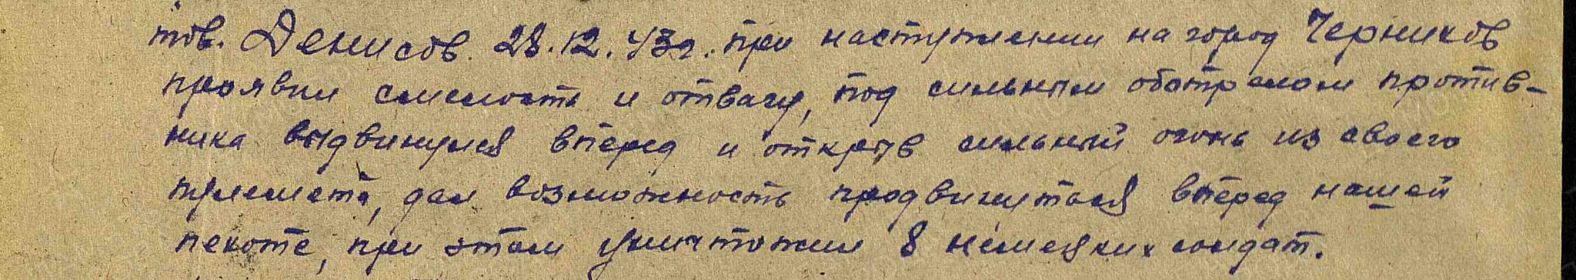 тов. Денисов. 28.12.43г. при наступлении на город Черняхов
проявил смелость и отвагу, под сильным обстрелом против-
ника выдвинулся вперед и открыв сильный огонь из своего
пулемета, дал возможность продвинуться вперед нашей
пехоте, при этом уничтожил 8 немецких солдат.